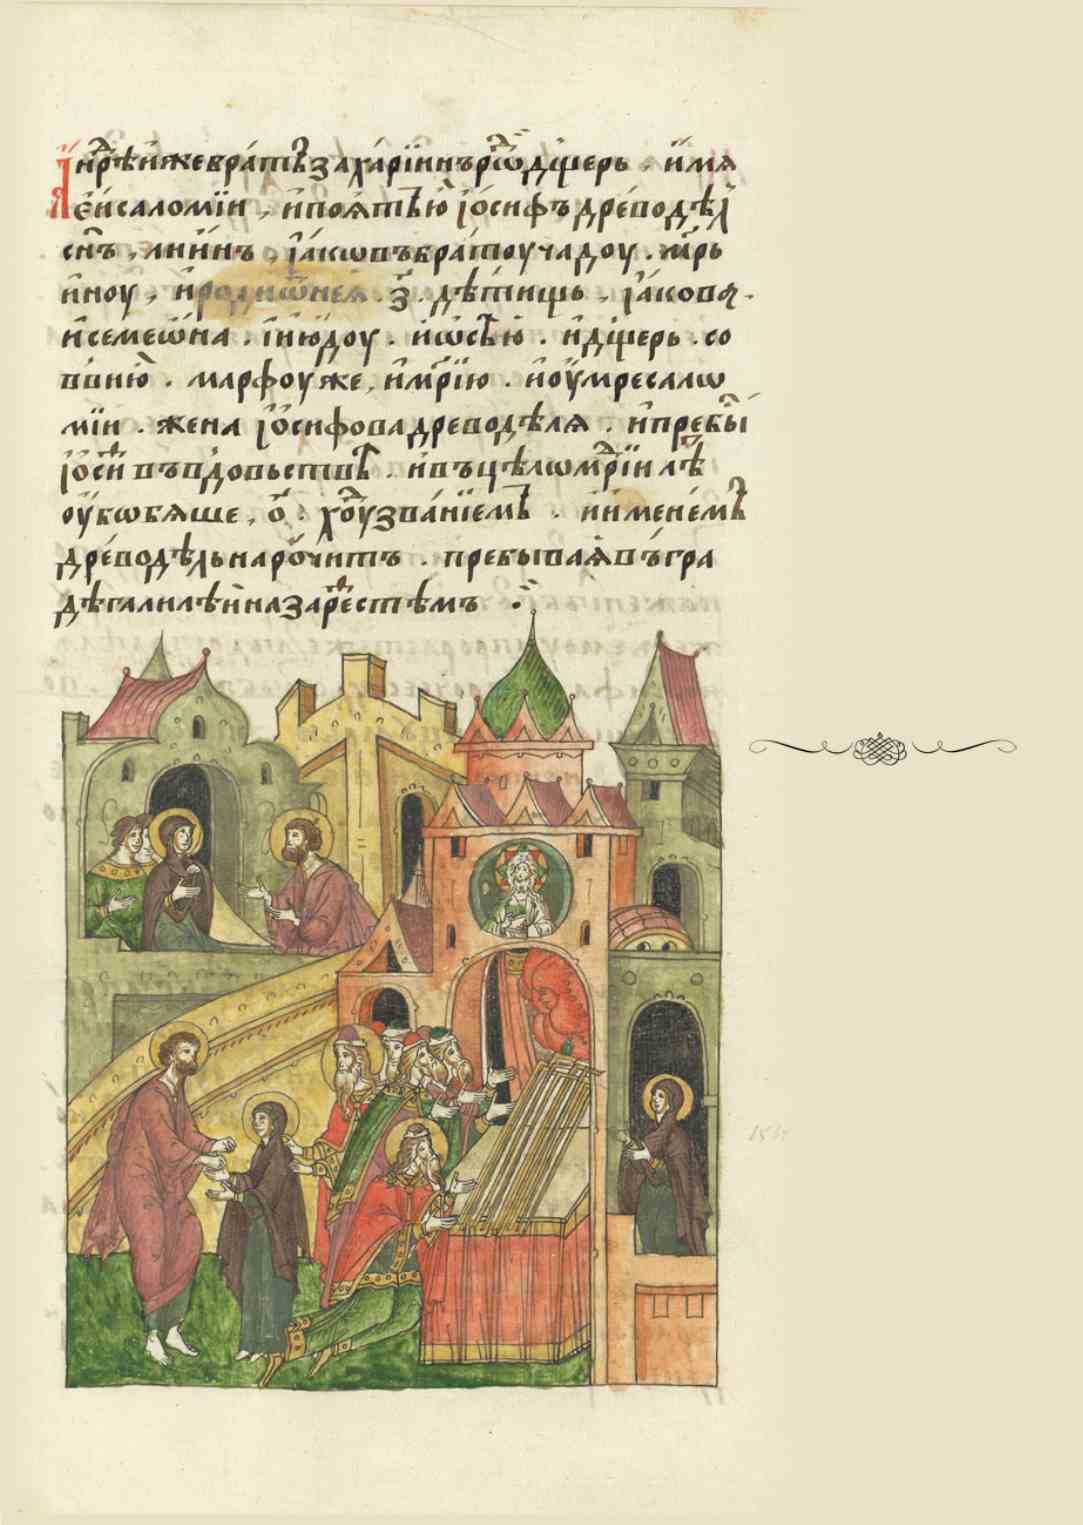 Аггѣи же братъ захарїинъ роди дщерь . имя
еи саломїи , и поятъ ю їосифъ древодѣл
снъ , мнинъ , їаковъ братоучадоу . мрь
иноу , и роди ѿ нея . з . дѣтищь . їакова .
и семеѡна . ї июдоу . и ѡсѣю . и дщерь . со
вѣию . марфоу же , и мрїю . и оумре салѡ
мїи . жена їосифова древодѣля . и пребы
їоси въ вдовьствѣ . и въ цѣлѡмрїи лѣ
оубѡ бяше , о . хоу званїемъ . и именемъ
древодѣль нарочитъ . пребывая въ гра
дѣ галилѣи назаресте емъ .